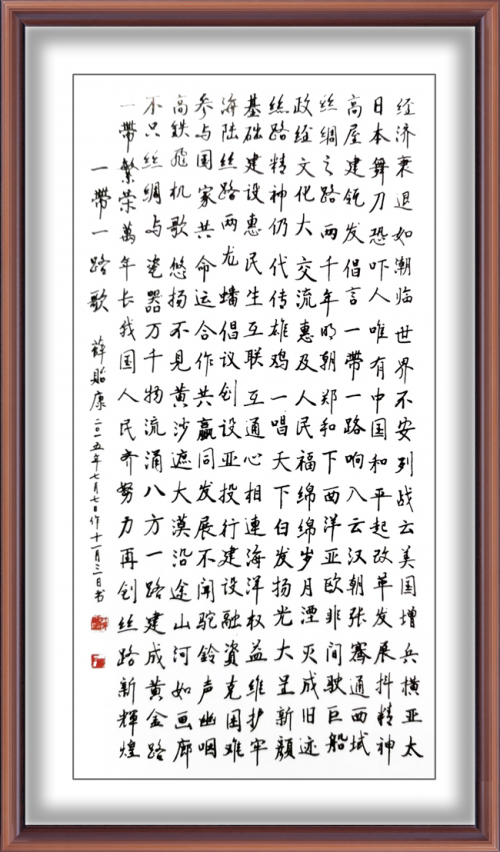 经济衰退如潮临世界不安列战云美国增兵横亚太
日本舞刀恐吓人唯有中国和平起改革发展抖精神
高屋建瓴发倡言一带一路响入云汉朝张骞通西域
丝绸之路两千年明朝郑和下西洋亚欧非间驶巨船
政经文化大交流惠及人民福绵绵岁月湮灭成旧迹
丝路精神仍代传雄鸡一唱天下白发扬光大呈新颜
基础建设惠民生互联互通心相連海洋权益维护牢
海陆丝路两龙蟠倡议创设亚投行建设融資克困难
参与国家共命运合作共赢同发展不闻驼铃声幽咽
高鉄飛机歌悠扬不见黄沙遮大漠沿途山河如画廊
不只丝绸与瓷器万千物流涌八方一路建成黄金路
一帶繁荣萬年长我国人民齐努力再创丝路新輝煌
一帶一路歌 薛贻康二〇一五年七月七日作十一月三日书